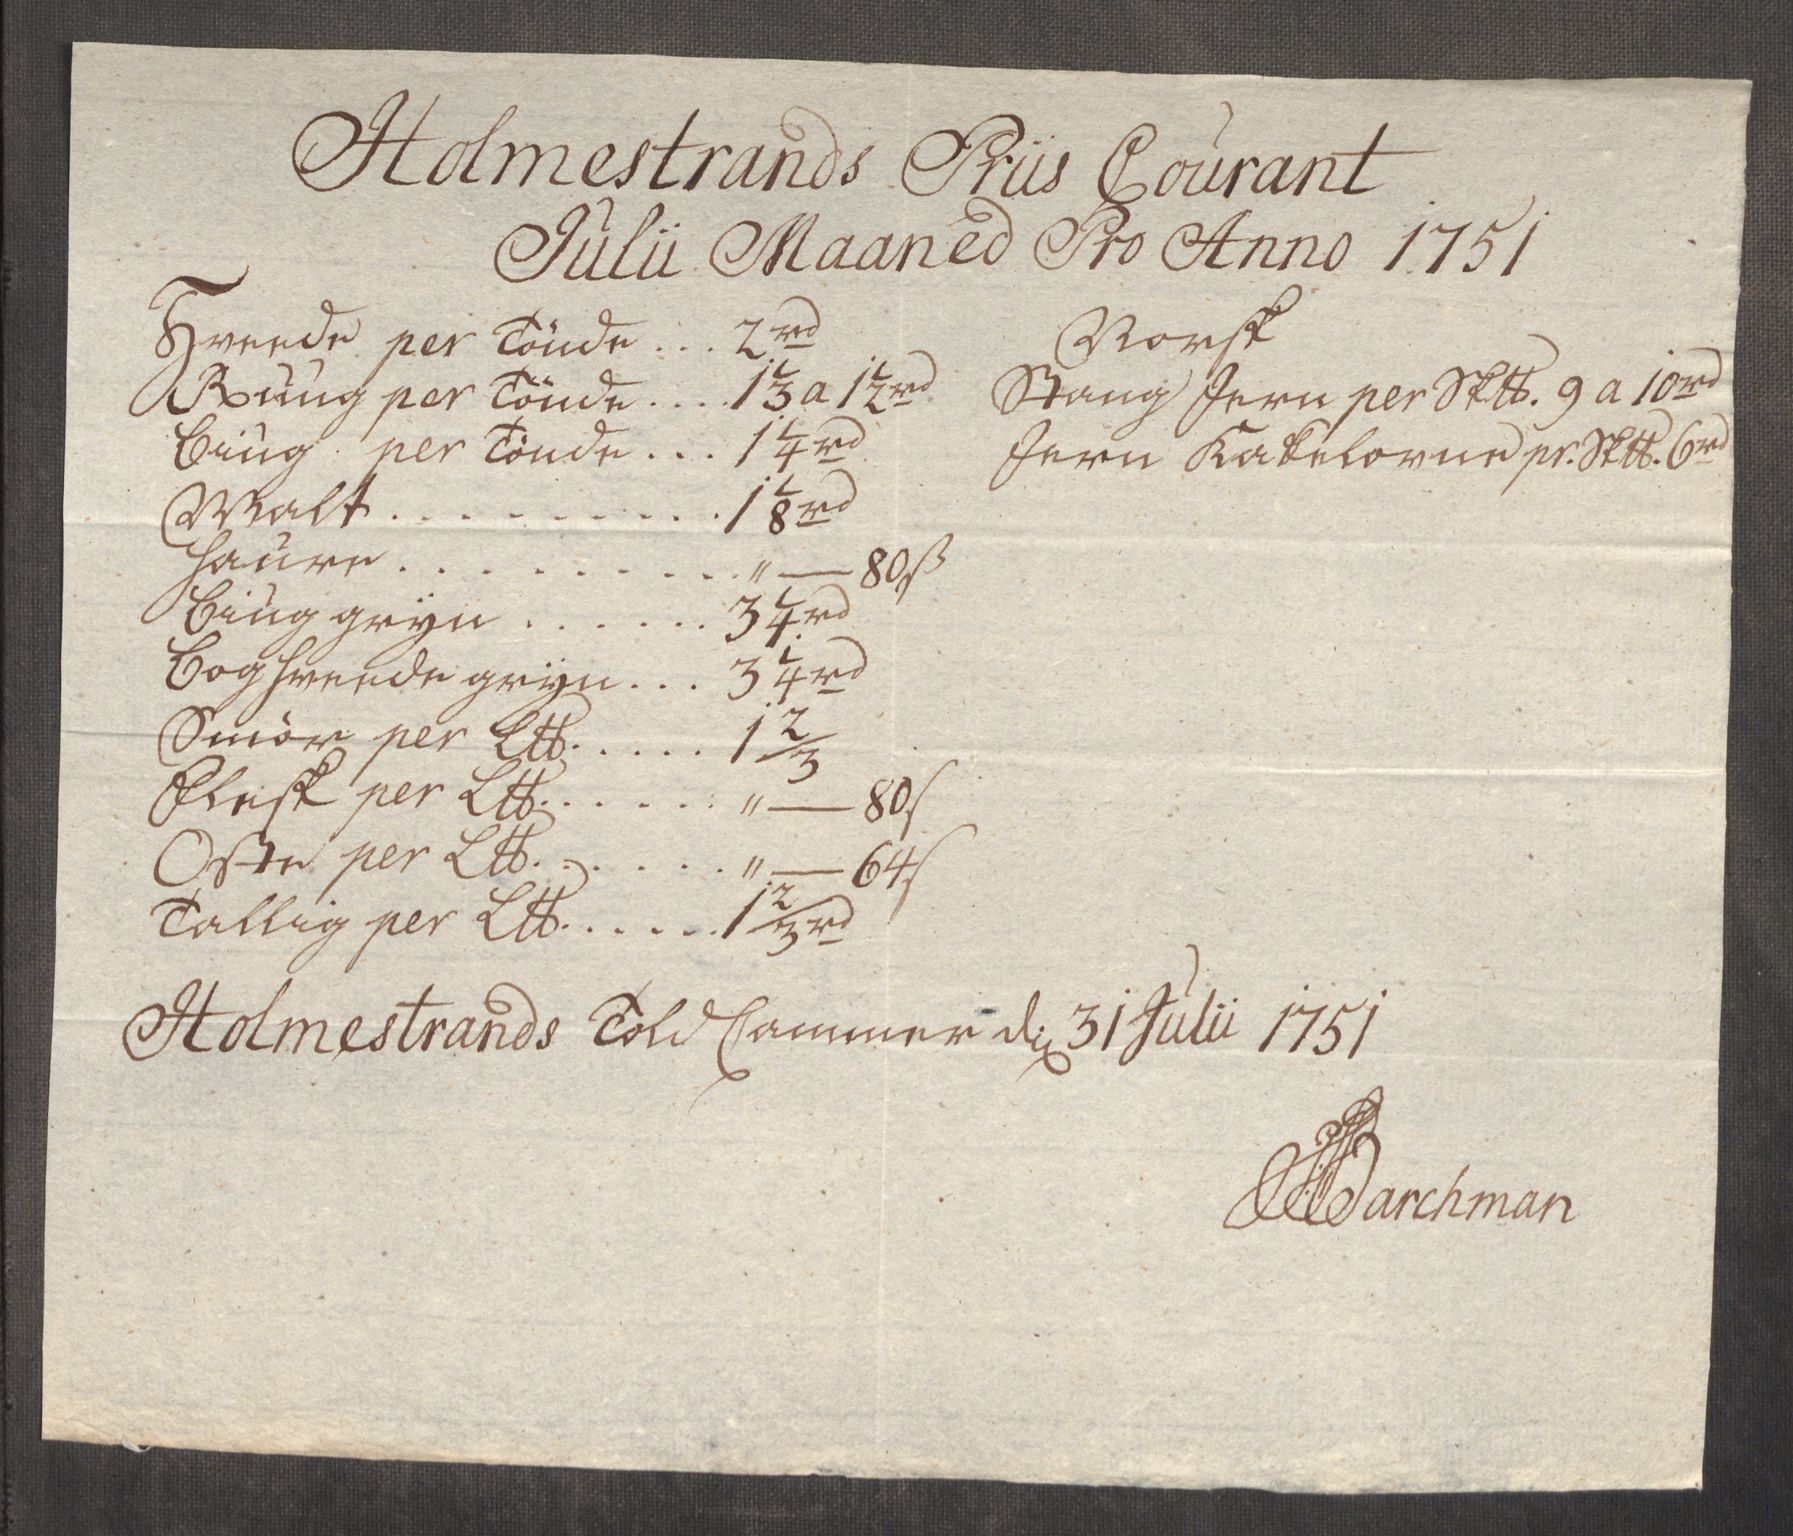 Holmestrands Priis Courant
Julii Maaned Pro Anno 1751
Hveede per Tönde ... 2 rd
Ruug per Tönde .... 1 1/3 a 1 1/2 rd
Biug per Tönde ... 1 1/4 rd
Malt .......... 1 1/8 rd
Haure .......... " — 80 ß
Biug grÿn ...... 3 1/4 rd
Boghveede grÿn ... 3 1/4 rd
Smör per L℔ ..... 1 2/3
Flesk per L℔ ...... " — 80 ß
Oste per L℔ ....... " — 64 ß
Tallig per L℔ ...... 1 2/3 rd
Norsk
Stang Jern per Sk℔. 9 a 10 rd
Jern Kakelovne pr. Sk℔. 6 rd
Holmestrands Told Cammer d. 31 Julii 1751
Barchman